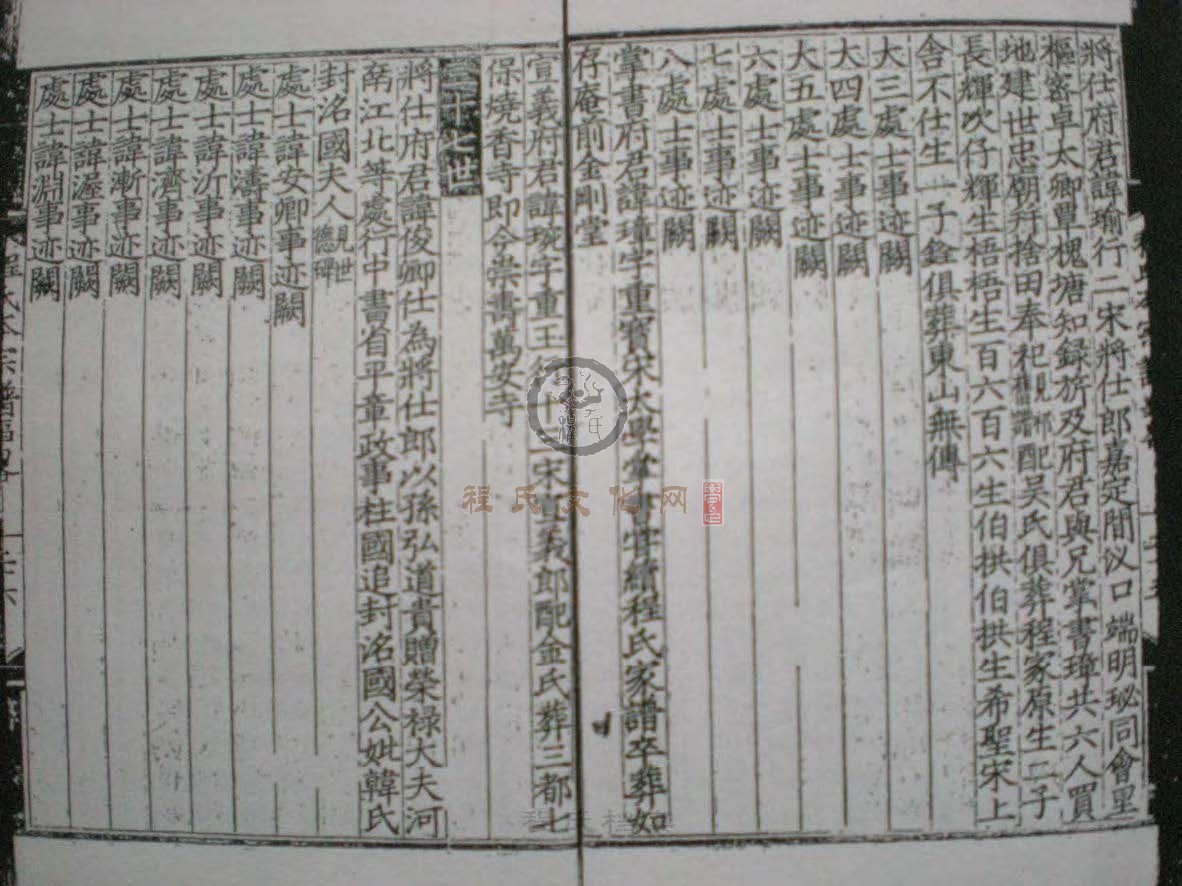 將仕府君諱瑜行二宋將仕郎嘉定間汊口端明珌同會里
樞密卓太卿覃槐塘知録旂及府君與兄掌書璋共六人買
地建世忠廟幷捨田奉祀見郡舊譜配吳氏俱葬程家原生二子
長輝次仔輝生梧梧生百六百六生伯拱伯拱生希聖宋上
舍不仕生一子銓俱葬東山無傳
大三處士事迹闕
大四處士事迹闕
大五處士事迹闕
六處士事迹闕
七處士事迹闕
八處士事迹闕
掌書府君諱璋字重寳宋太學掌書甞續程氏家譜卒葬如
存庵前金剛堂
宣義府君諱琬字重玉行十二宋宣義郎配金氏葬三都七
保燒香寺即今崇壽萬安寺
三十七世
將仕府君諱俊卿仕為將仕郎以孫弘道貴贈榮禄大夫河
南江北等處行中書省平章政事柱國追封洺國公妣韓氏
封洺國夫人見世德碑
處士諱安卿事迹闕
處士諱濤事迹闕
處士諱沂事迹闕
處士諱濟事迹闕
處士諱漸事迹闕
處士諱渥事迹闕
處士諱淵事迹闕
程氏文化网